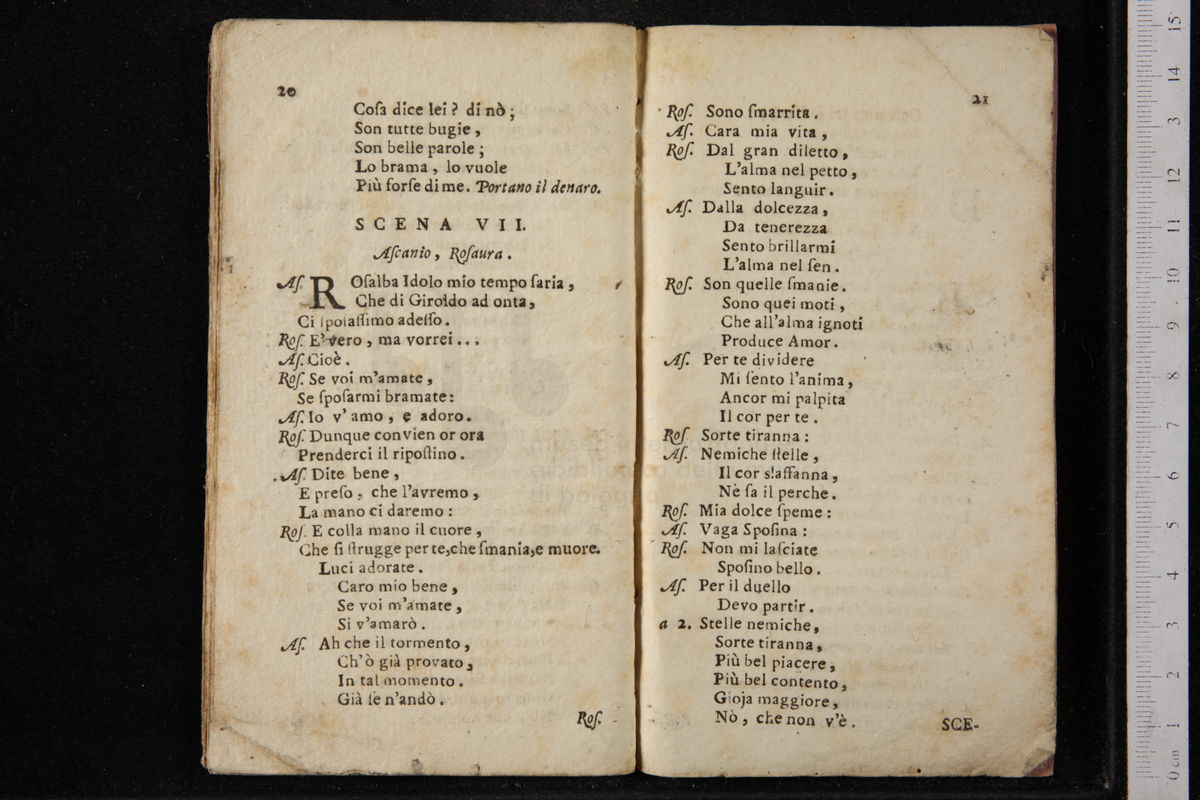 20
Coſa dice lei ? di nò ;
Son tutte bugie ,
Son belle parole ;
Lo brama , lo vuole
Più forſe di me. Portano il denaro.
SCENA VII.
Aſcanio , Roſaura .
Aſ. ROſalba Idolo mio tempo ſaria ,
Che di Giroldo ad onta ,
Ci ſpoſaſſimo adeſſo .
Roſ. E' vero , ma vorrei . . .
Aſ. Cioè .
Roſ. Se voi m'amate ,
Se ſpoſarmi bramate :
Aſ. Io v' amo , e adoro .
Roſ. Dunque convien or ora
Prenderci il ripoſtino .
Aſ. Dite bene ,
E preſo , che l'avremo ,
La mano ci daremo :
Roſ. E colla mano il cuore ,
Che ſi ſtrugge per te,che ſmania,e muore.
Luci adorate .
Caro mio bene ,
Se voi m'amate ,
Si v'amarò .
Aſ. Ah che il tormento ,
Ch' ò già provato ,
In tal momento .
Già ſe n'andò .
Roſ.
21
Roſ. Sono ſmarrita .
Aſ. Cara mia vita ,
Roſ. Dal gran diletto ,
L'alma nel petto ,
Sento languir .
Aſ. Dalla dolcezza ,
Da tenerezza
Sento brillarmi
L'alma nel ſen .
Roſ. Son quelle ſmanie .
Sono quei moti ,
Che all'alma ignoti
Produce Amor .
Aſ. Per te dividere
Mi ſento l'anima ,
Ancor mi palpita
Il cor per te .
Roſ Sorte tiranna :
Aſ. Nemiche ſtelle ,
Il cor s'affanna ,
Nè ſa il perche .
Roſ. Mia dolce ſpeme :
Aſ. Vaga Spoſina :
Roſ. Non mi laſciate
Spoſino bello .
Aſ. Per il duello
Devo partir .
a 2. Stelle nemiche ,
Sorte tiranna ,
Più bel piacere ,
Più bel contento ,
Gioja maggiore ,
Nò , che non v'è .
SCE-